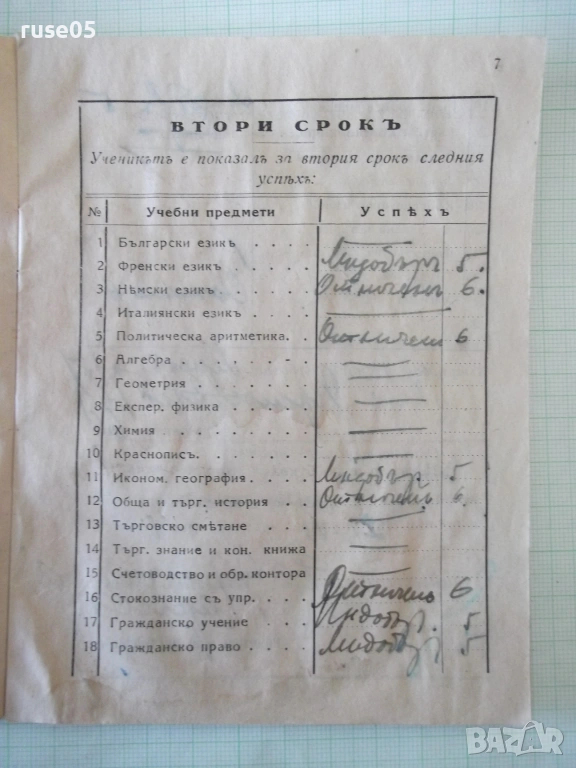 ruse05
7
ВТОРИ СРОКЪ
Ученикътъ е показалъ за втория срокъ следния
успѣхъ:
№ Учебни предмети Успѣхъ
1 Български езикъ . . . .
2 Френски езикъ . . . . Мн.добъръ 5.
3 Нѣмски езикъ . . . . . Отличенъ 6.
4 Италиянски езикъ . . . .
5 Политическа аритметика. . Отличенъ 6
6 Алгебра . . . . . . .
7 Геометрия . . . . . .
8 Експер. физика . . . . .
9 Химия . . . . . . . .
10 Краснописъ. . . . . . .
11 Иконом. география . . . . Мн.добър 5
12 Обща и търг. история . . . Отличенъ 6.
13 Търговско смѣтане . . . .
14 Търг. знание и кон. книжа
15 Счетоводство и обр. контора
16 Стокознание съ упр. . . . Отличенъ 6
17 Гражданско учение . . . . Мн.добър. 5
18 Гражданско право . . . . Мн.добър 5
BAZAR